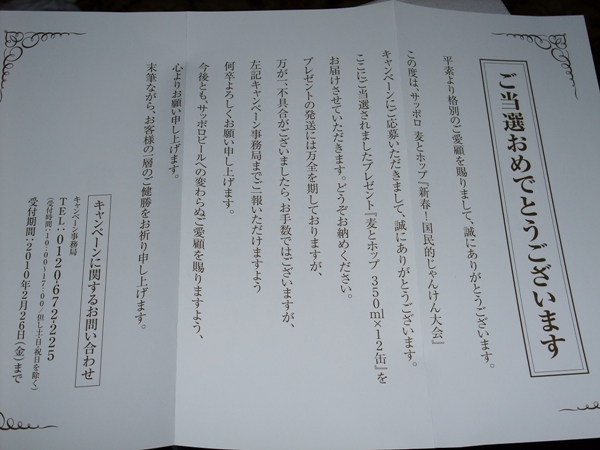 ご当選おめでとうございます
平素より格別のご愛顧を賜りまして、誠にありがとうございます。
この度は、サッポロ 麦とホップ『新春!国民的じゃんけん大会』
キャンペーンにご応募いただきまして、誠にありがとうございます。
ここにご当選されましたプレゼント『麦とホップ 350ml×12缶』を
お届けさせていただきます。どうぞお納めください。
プレゼントの発送には万全を期しておりますが、
万が一、不具合がございましたら、お手数ではございますが、
左記キャンペーン事務局までご一報いただけますよう
何卒よろしくお願い申し上げます。
今後とも、サッポロビールへの変わらぬご愛顧を賜りますよう、
心よりお願い申し上げます。
末筆ながら、お客様の一層のご健勝をお祈り申し上げます。
キャンペーンに関するお問い合わせ
キャンペーン事務局
TEL:0120-672-225
(受付時間:10:00~17:00/但し土・日・祝日を除く)
受付期間:2010年2月26日(金)まで